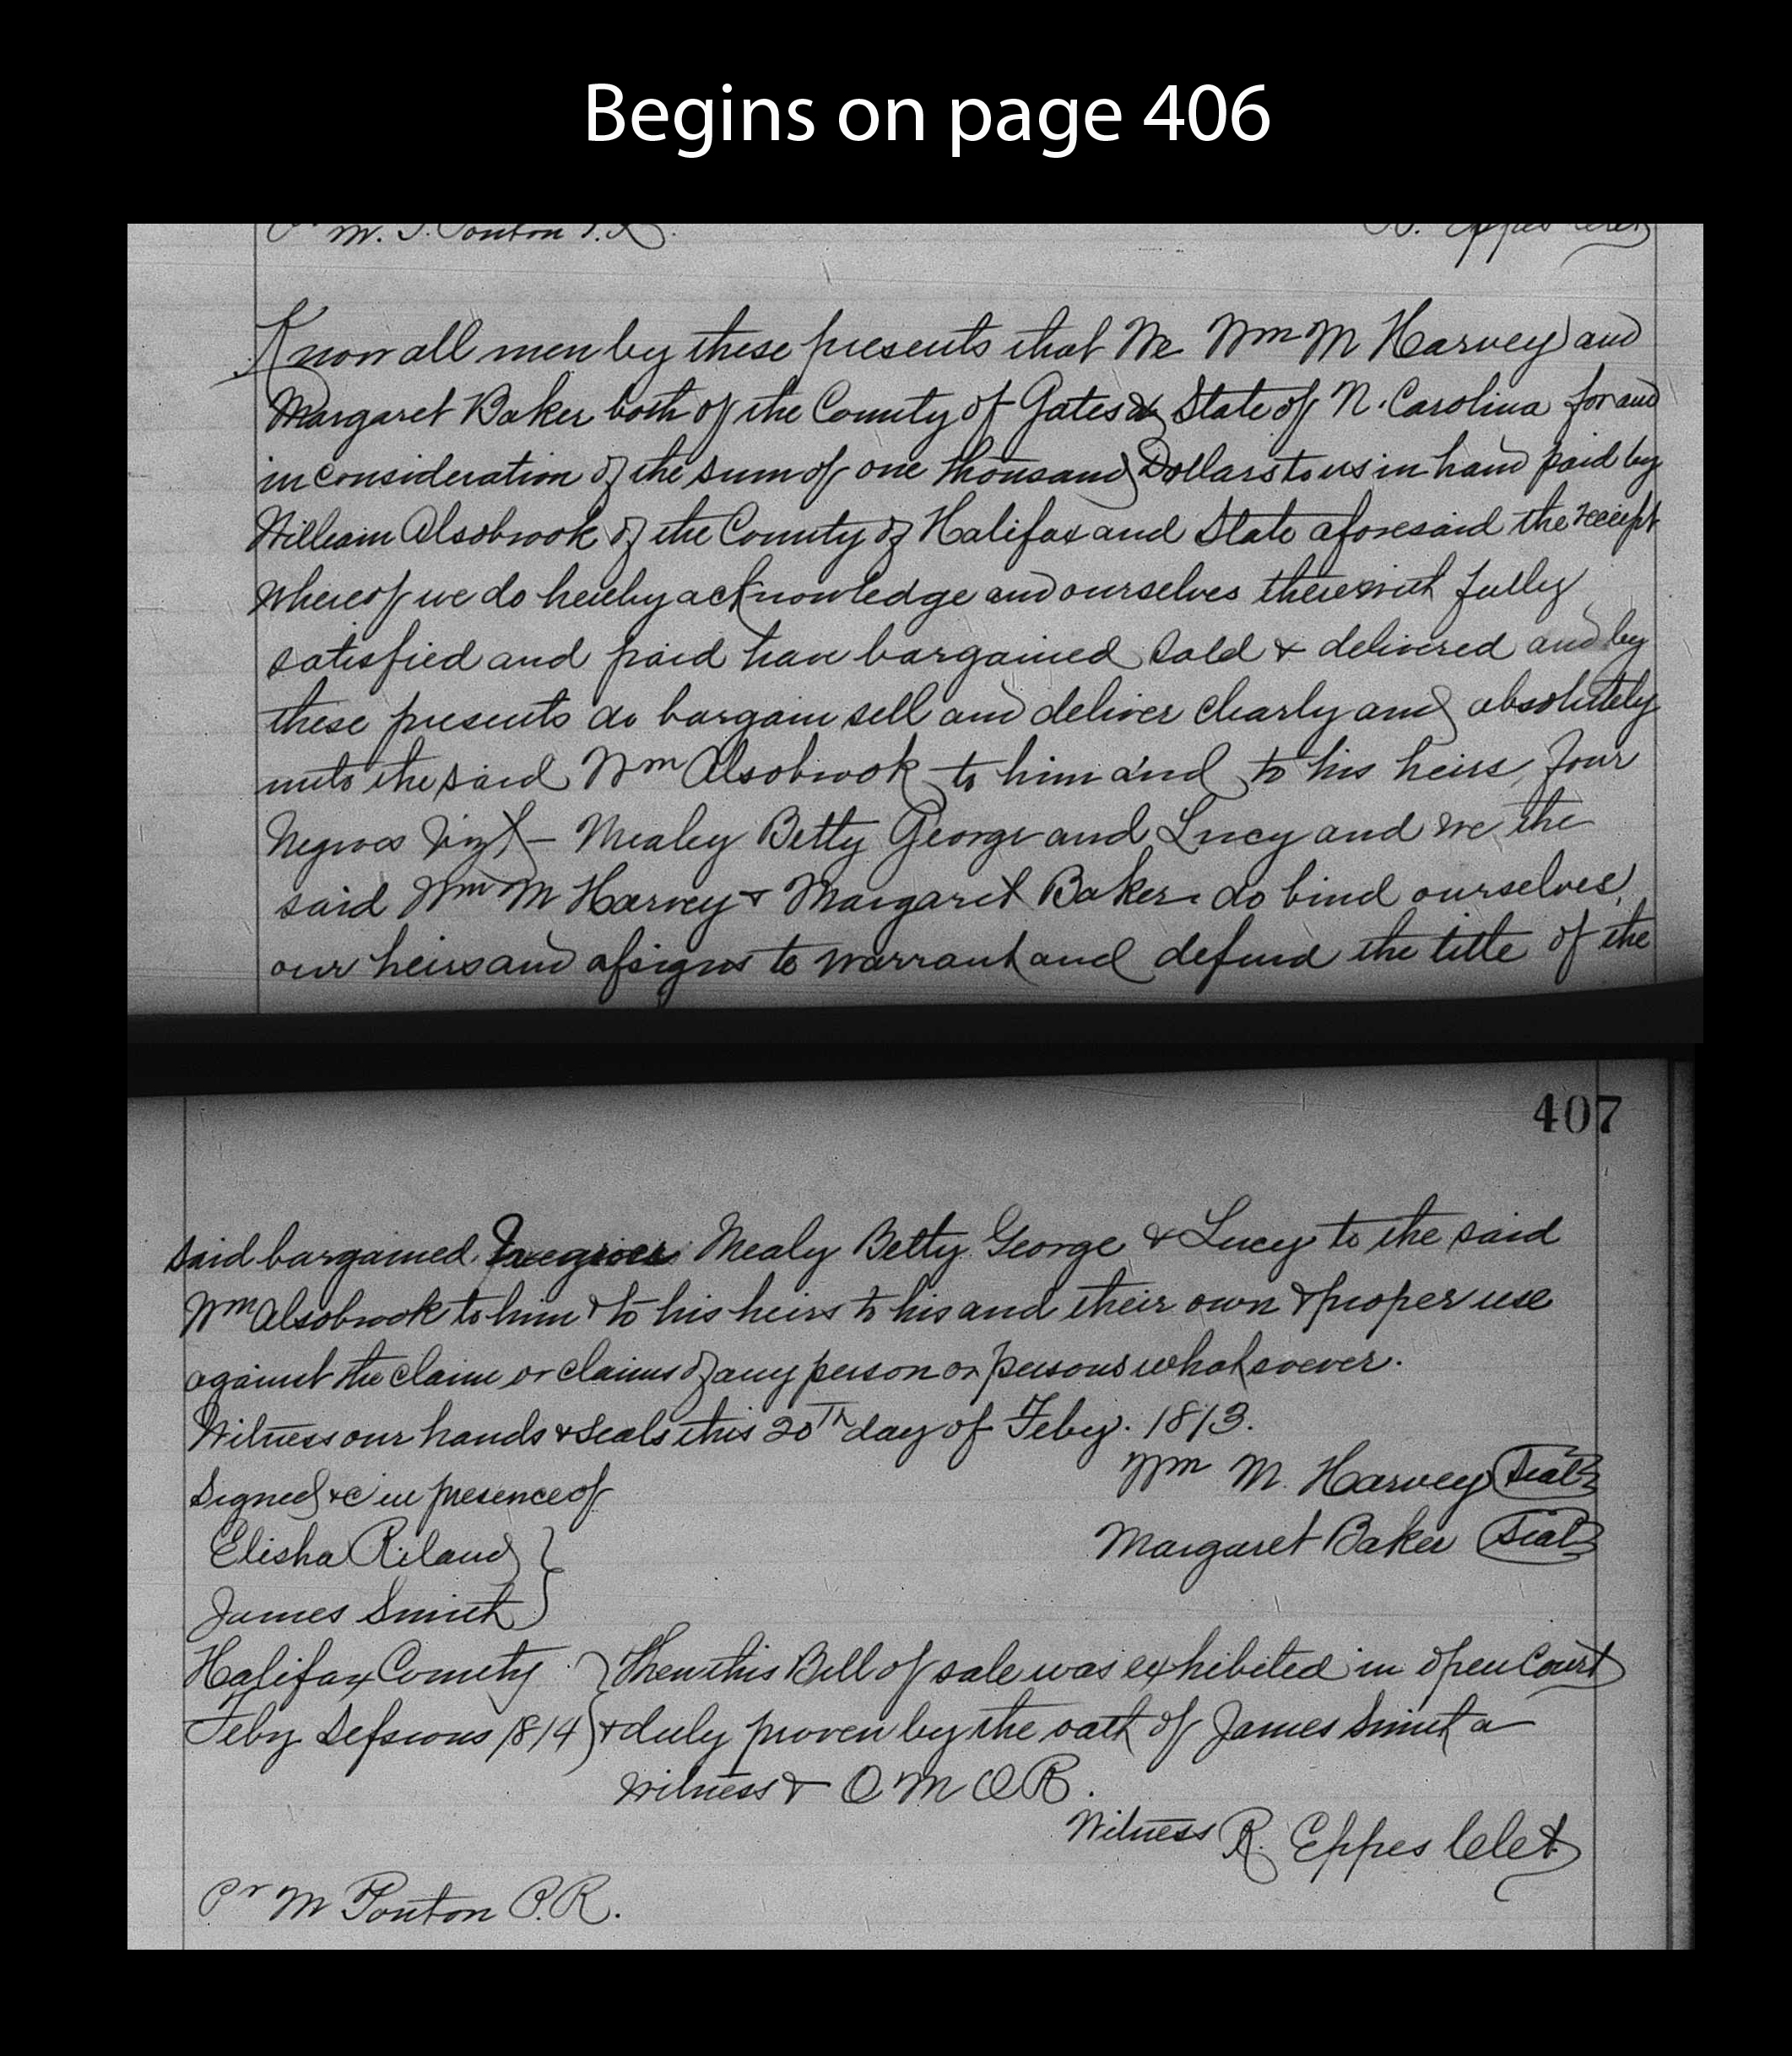 Begins on page 406
Pr M. T. Ponton P.R.
R. Eppes Clet
Know all men by these presents that We Wm M Harvey and
Margaret Baker both of the County of Gates & State of N. Carolina for and
in consideration of the sum of one thousand Dollars to us in hand paid by
William Alsobrook of the County of Halifax and State aforesaid the receipt
whereof we do hereby acknowledge and ourselves therewith fully
satisfied and paid have bargained sold & delivered and by
these presents do bargain sell and deliver clearly and absolutely
unto the said Wm Alsobrook to him and to his heirs four
Negroes Viz - Mealey Betty George and Lucy and we the
said Wm M Harvey & Margaret Baker do bind ourselves,
our heirs and assigns to warrant and defend the title of the
407
said bargained Negroes Mealy Betty George & Lucy to the said
Wm Alsobrook to him & to his heirs to his and their own & proper use
against the claim or claims of any person or persons whatsoever.
Witness our hands & seals this 20th day of Feby. 1813.
Wm M. Harvey Seal
Signed &c in presence of
Margaret Baker Seal
Elisha Riland
James Smith
Halifax County } Then this Bill of sale was exhibited in open Court
Feby Sessions 1814 } & duly proven by the oath of James Smith a
witness & O M O R.
Witness R. Eppes Clet
Pr M Ponton P.R.